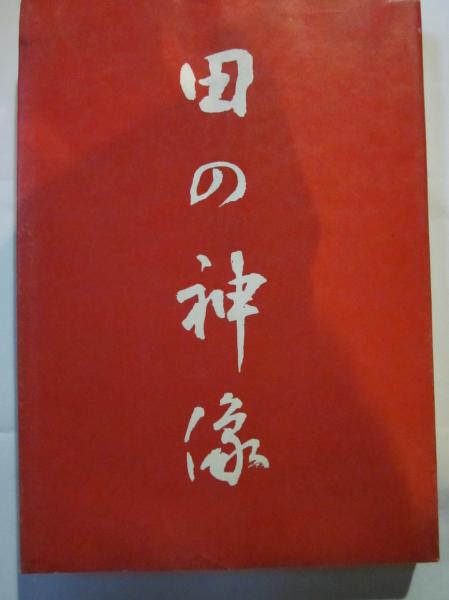 田の神像